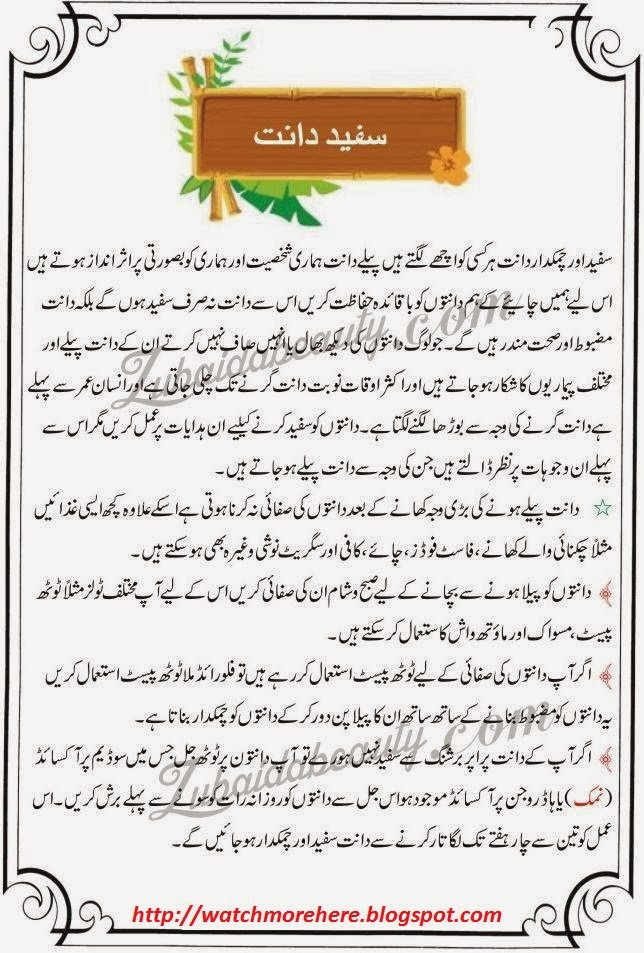 سفید دانت
سفید اور چمکدار دانت ہر کسی کو اچھے لگتے ہیں پیلے دانت ہماری شخصیت اور ہماری کو بصورتی پر اثر انداز ہوتے ہیں
اس لیے ہمیں چاہیئے کے ہم دانتوں کو باقائدہ حفاظت کریں اس سے دانت نہ صرف سفید ہوں گے بلکہ دانت
مضبوط اور صحت مندر ہیں گے۔ جو لوگ دانتوں کی دیکھ بھال یا انہیں صاف نہیں کرتے ان کے دانت پیلے اور
مختلف بیماریوں کا شکار ہو جاتے ہیں اور اکثر اوقات نوبت دانت گرنے تک چلی جاتی ہے اور انسان عمر سے پہلے
ہے دانت گرنے کی وجہ سے بوڑھا لگنے لگتا ہے۔ دانتوں کو سفید کرنے کیلیے ان ہدایات پر عمل کریں مگر اس سے
پہلے ان وجوہات پر نظر ڈالتے ہیں جن کی وجہ سے دانت پیلے ہو جاتے ہیں۔
☆ دانت پیلے ہونے کی بڑی وجہ کھانے کے بعد دانتوں کی صفائی نہ کرنا ہوتی ہے اسکے علاوہ کچھ ایسی غذائیں
مثلاً چکنائی والے کھانے، فاسٹ فوڈز، چائے، کافی اور سگریٹ نوشی وغیرہ بھی ہو سکتے ہیں۔
دانتوں کو پیلا ہونے سے بچانے کے لیے صبح و شام ان کی صفائی کریں اس کے لیے آپ مختلف ٹولز مثلاً ٹوٹھ
پیسٹ، مسواک اور ماؤتھ واش کا ستعمال کر سکتے ہیں۔
اگر آپ دانتوں کی صفائی کے لیے ٹوٹھ پیسٹ استعمال کر رہے ہیں تو فلورائڈ ملا ٹوٹھ پیسٹ استعمال کریں
یہ دانتوں کو مضبوط بنانے کے ساتھ ساتھ ان کا پیلا پن دور کر کے دانتوں کو چمکدار بناتا ہے۔
اگر آپ کے دانت پراپر برشنگ سے سفید نہیں ہورے تو آپ دانتون پر ٹوٹھ جل جس میں سوڈیم پر آکسائڈ
(نمک) یا ہاڈروجن پر آکسائڈ موجود ہو اس جل سے دانتوں کو روزانہ رات کو سونے سے پہلے برش کریں۔ اس
عمل کو تین سے چار ہفتے تک لگا تار کرنے سے دانت سفید اور چمکدار ہو جائیں گے۔
Zubaidabeauty.com
Zubaidabeauty.com
http://watchmorehere.blogspot.com